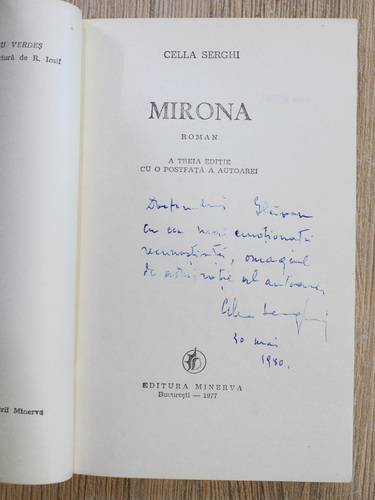 U VERDEȘ
ctură de R. Iosif
CELLA SERGHI
MIRONA
ROMAN
A TREIA EDIȚIE
CU O POSTFAȚĂ A AUTOAREI
cu cea mai emoționată
recunoștință, omagiul
de admirație al autoarei,
Cella Serghi
30 mai
1980.
EDITURA MINERVA
București — 1977
rii Minerva